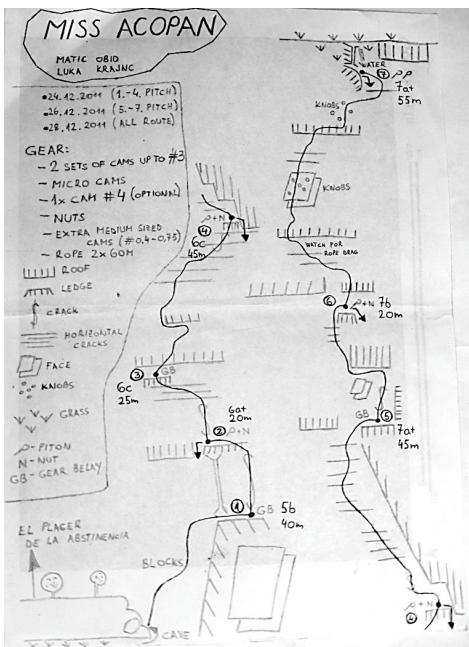 MISS ACOPAN
MATIC OBID
LUKA KRAJNC
•24.12.2011 (1.-4. PITCH)
•26.12.2011 (5.-7. PITCH)
•28.12.2011 (ALL ROUTE)
GEAR:
- 2 SETS OF CAMS UP TO #3
- MICRO CAMS
- 1x CAM #4 (OPTIONAL)
- NUTS
- EXTRA MEDIUM SIZED
CAMS (#0,4-0,75)
- ROPE 2x60M
ROOF
LEDGE
CRACK
HORIZONTAL
CRACKS
FACE
KNOBS
GRASS
-PITON
N-NUT
GB-GEAR BELAY
EL PLACER
DE LA ABSTINENCIA
BLOCKS
CAVE
1
GB 5b
40m
6a+
20m
2
P+N
3
GB
6c
25m
P+N
4
6c
45m
4
P+N
GB
5
7a+
45m
6
P+N 7b
20m
WATCH FOR
ROPE DRAG
KNOBS
KNOBS
WATER
7
PP
7a+
55m